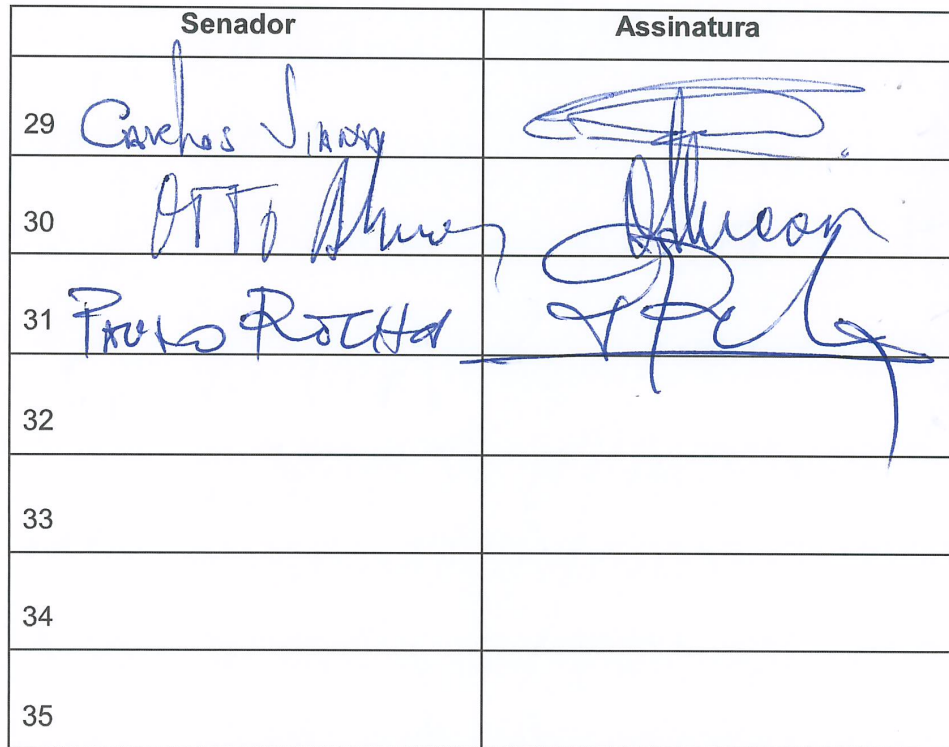 Senador Assinatura
29 Carlos Viana
30 OTTO
31 PAULO ROCHA
32
33
34
35